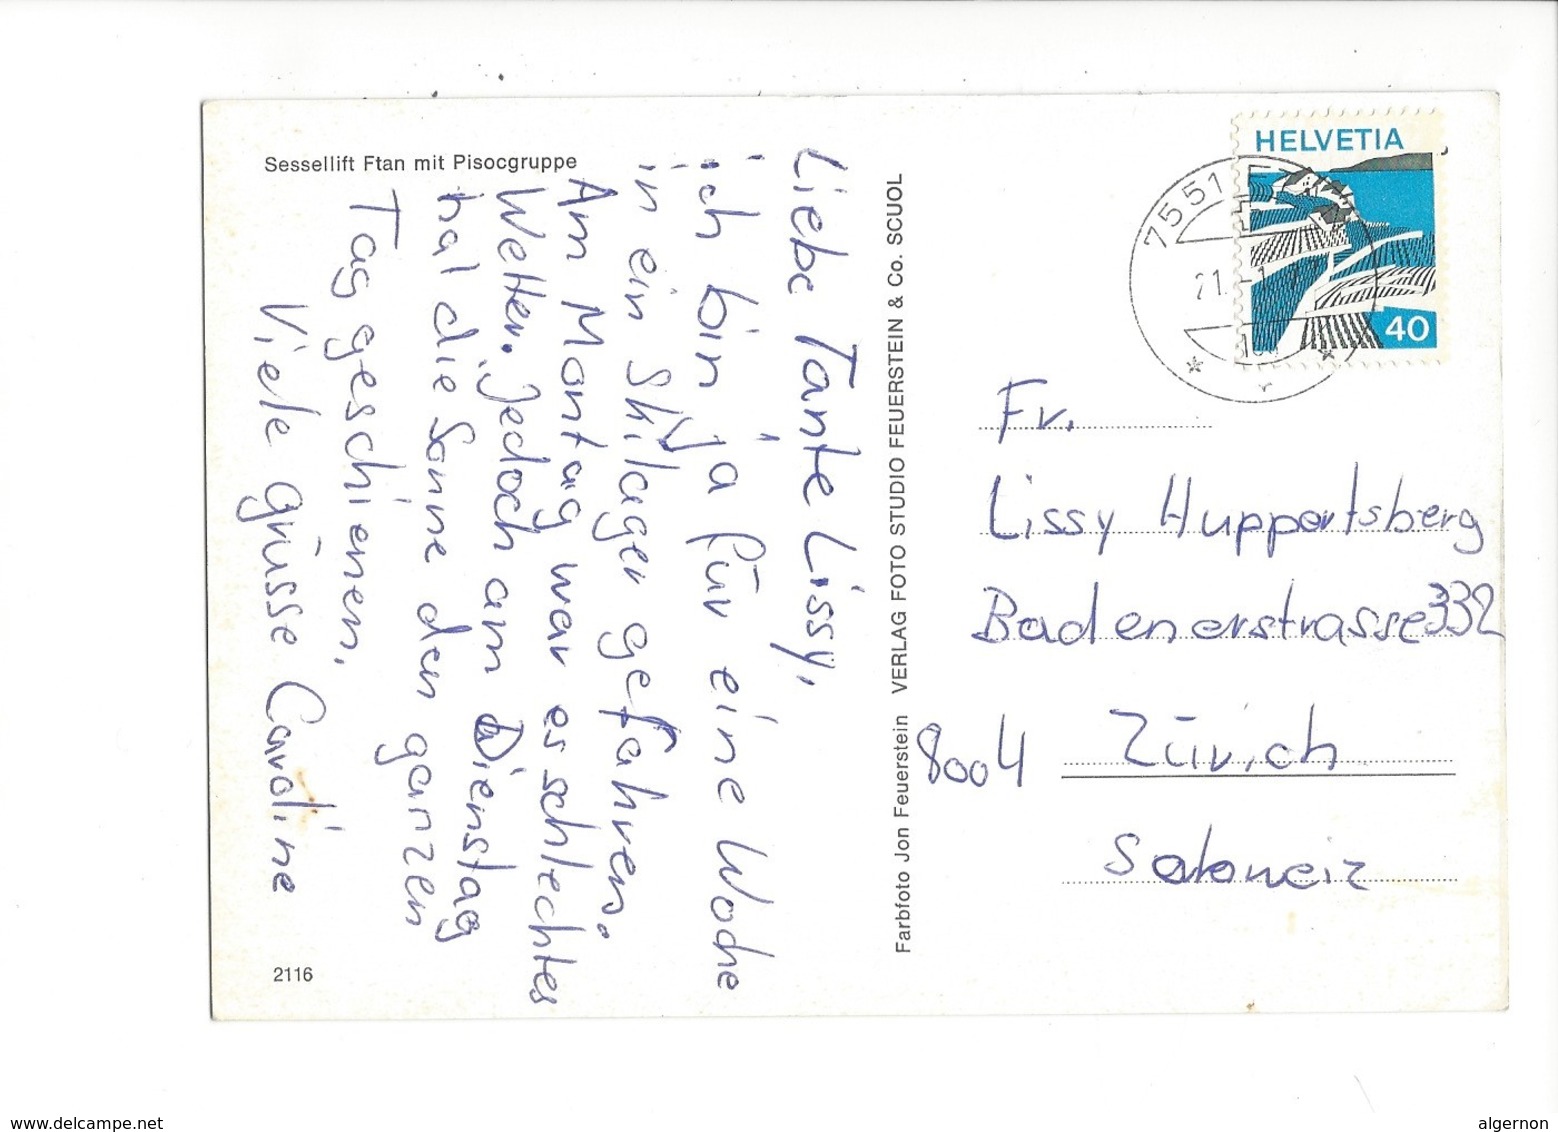 Sessellift Ftan mit Pisocgruppe
Liebe Tante Lissy,
ich bin ja für eine Woche
in ein Skilager gefahren.
Am Montag war es schlechtes
Wetter. Jedoch am Dienstag
hat die Sonne den ganzen
Tag geschienen.
Viele grüsse Caroline
2116
Farbfoto Jon Feuerstein VERLAG FOTO STUDIO FEUERSTEIN & Co. SCUOL
HELVETIA
40
7551
21.
Fr.
Lissy Huppertsberg
Badenerstrasse 332
8004 Zürich
Schweiz
www.delcampe.net
algernon